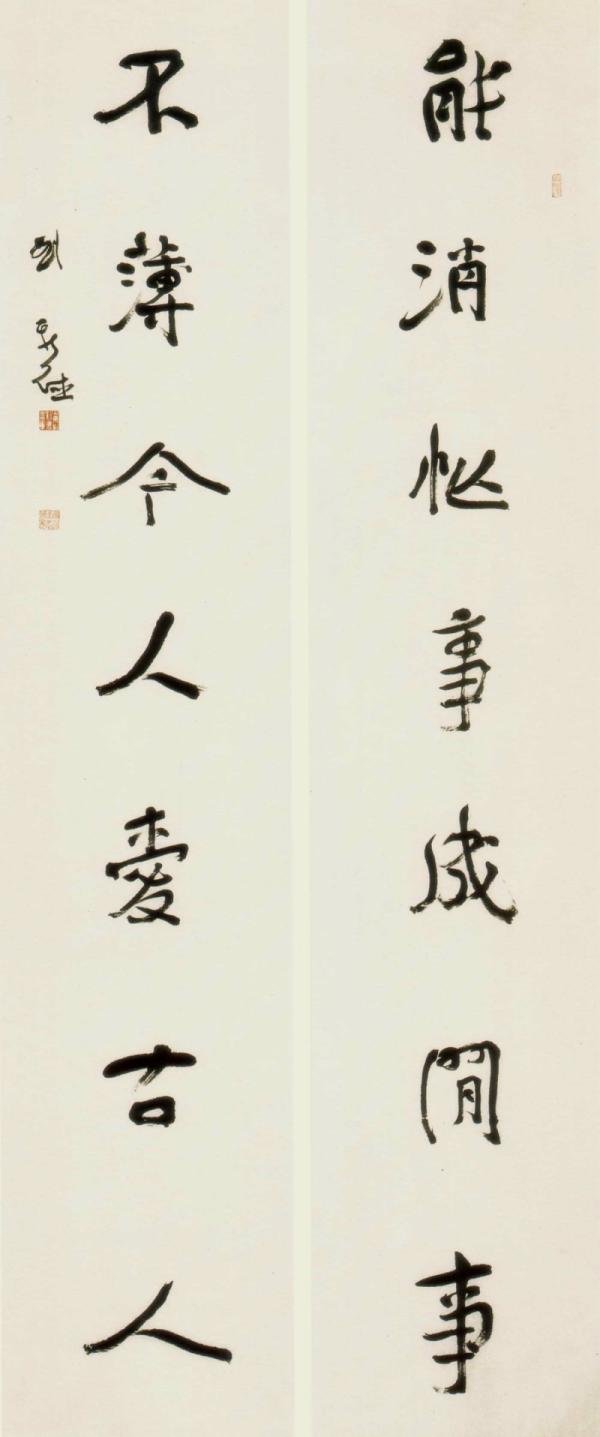 能消忙事成閒事
不薄今人愛古人
劉